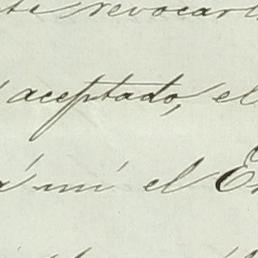 revocar
aceptado, el
á mí el E